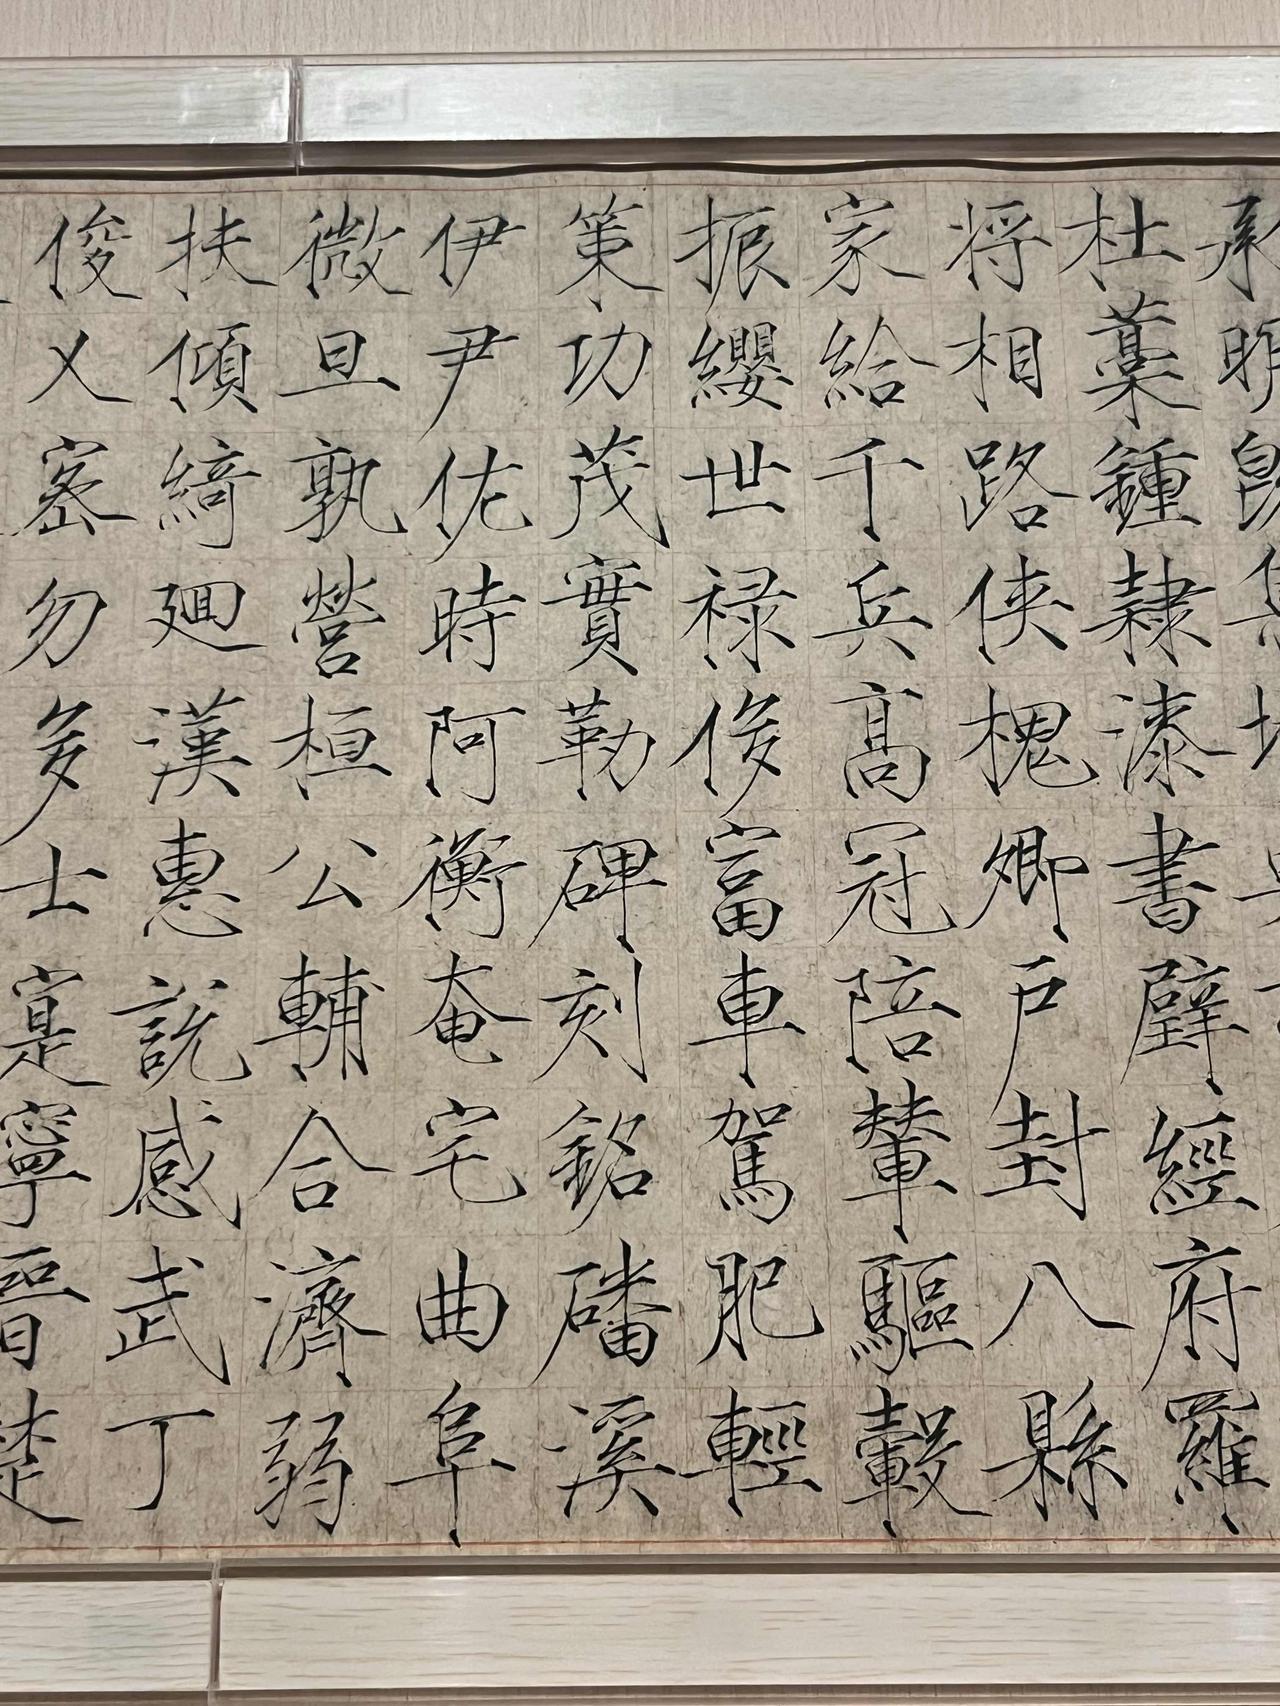 承明既集墳典
杜藁鍾隷漆書壁經府羅
将相路俠槐卿戶封八縣
家給千兵髙冠陪輦驅轂
振纓世禄侈富車駕肥輕
策功茂實勒碑刻銘磻溪
伊尹佐時阿衡奄宅曲阜
微旦孰營桓公輔合濟弱
扶傾綺廻漢惠說感武丁
俊乂密勿多士寔寧晉楚